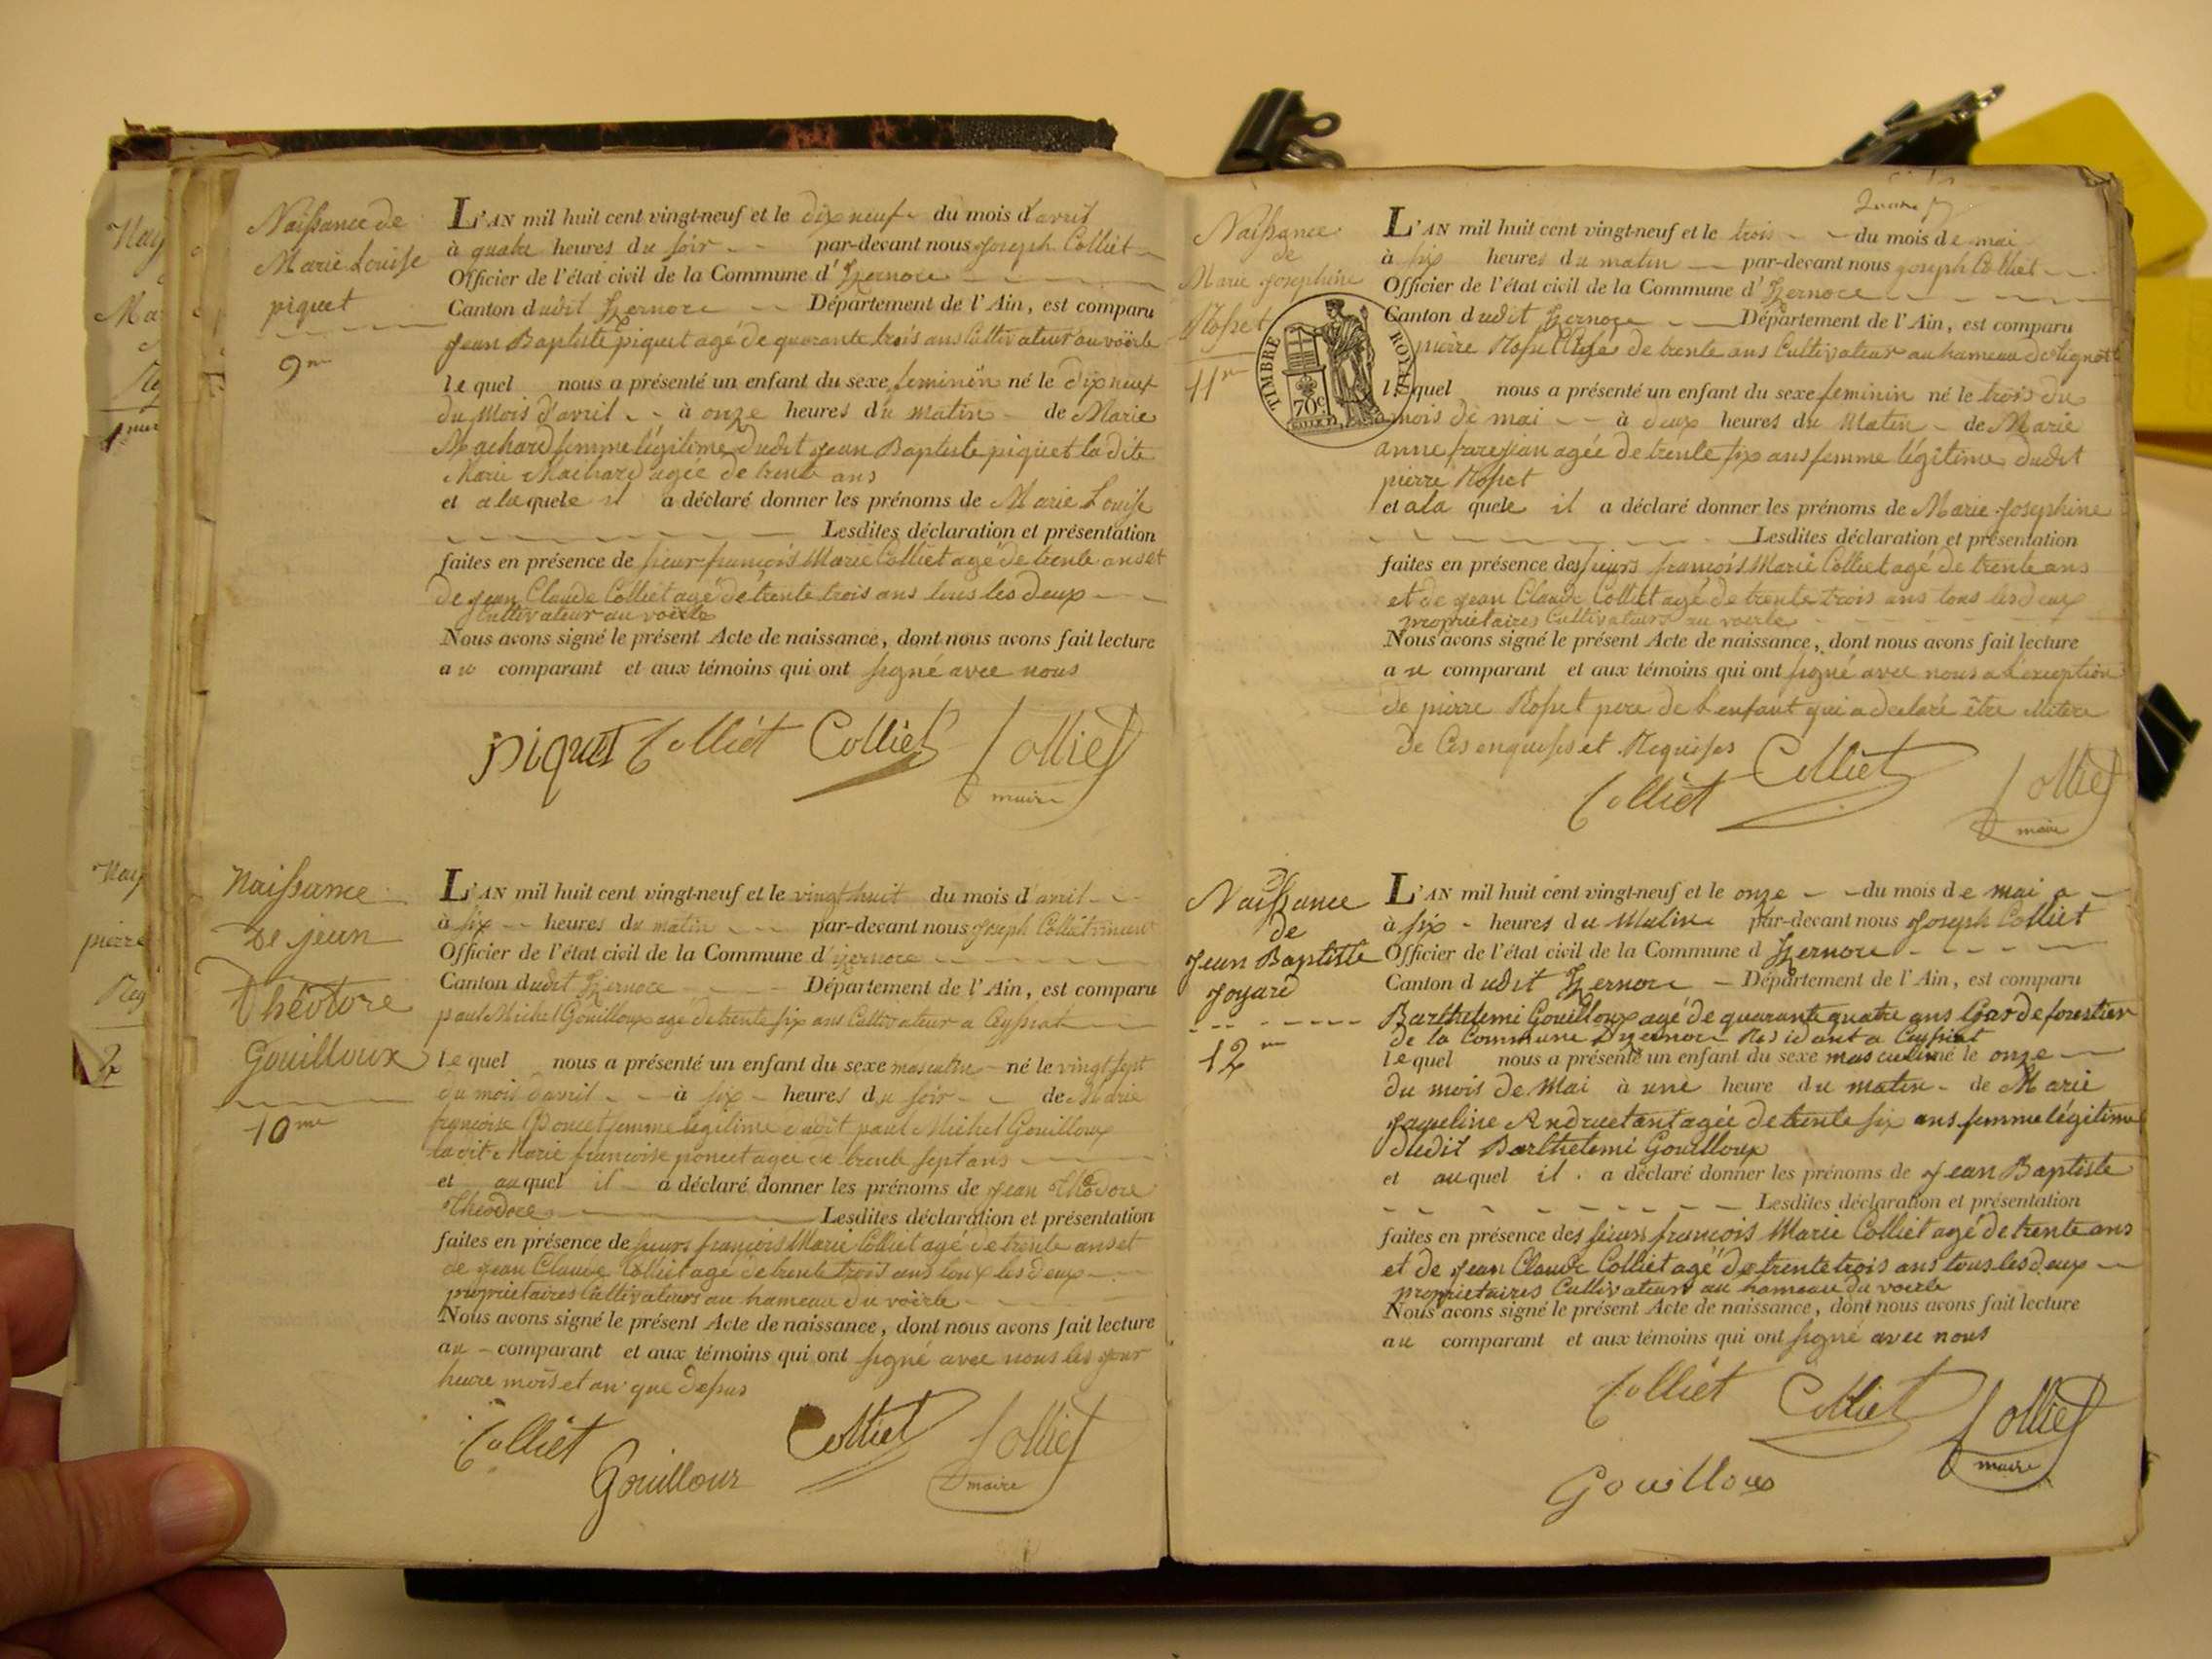 Naissance de
Marie Louise
piquet
9me
L'AN mil huit cent vingt-neuf et le dix neuf du mois d'avril
à quatre heures du soir par-devant nous Joseph Colliet
Officier de l'état civil de la Commune d'Izernore
Canton dudit Izernore Département de l'Ain, est comparu
Jean Baptiste piquet agé de quarante trois ans Cultivateur au voërle
lequel nous a présenté un enfant du sexe feminin né le dix neuf
du mois d'avril à onze heures du matin de Marie
Machard femme légitime dudit Jean Baptiste piquet la dite
Marie Machard agée de trente ans
et a laquele il a déclaré donner les prénoms de Marie Louise
Lesdites déclaration et présentation
faites en présence de sieur françois Marie Colliet agé de trente ans et
de Jean Claude Colliet agé de trente trois ans tous les deux
Cultivateur au voërle
Nous avons signé le présent Acte de naissance, dont nous avons fait lecture
au comparant et aux témoins qui ont signé avec nous
piquet Colliet Colliet Colliet
maire
Naissance
de jean
Théodore
Gouilloux
10me
L'AN mil huit cent vingt-neuf et le vingt huit du mois d'avril
à six heures du matin par-devant nous Joseph Colliet maire
Officier de l'état civil de la Commune d'izernore
Canton dudit Izernore Département de l'Ain, est comparu
paul Michel Gouilloux agé de trente six ans Cultivateur a Ceyssiat
lequel nous a présenté un enfant du sexe masculin né le vingt sept
du mois d'avril à six heures du soir de Marie
françoise Poncet femme légitime dudit paul Michel Gouilloux
la dite Marie francoise poncet agée de trente sept ans
et auquel il a déclaré donner les prénoms de Jean Théodore
Théodore Lesdites déclaration et présentation
faites en présence de sieurs françois Marie Colliet agé de trente ans et
de Jean Claude Colliet agé de trente trois ans tous les deux
propriétaires Cultivateurs au hameau du voërle
Nous avons signé le présent Acte de naissance, dont nous avons fait lecture
au comparant et aux témoins qui ont signé avec nous les jour
heure mois et an que dessus
Colliet Gouilloux Colliet Colliet
maire
Naissance
de
Marie Josephine
Rosset
11me
TIMBRE ROYAL
70c
L'AN mil huit cent vingt-neuf et le trois du mois de mai
à six heures du matin par-devant nous Joseph Colliet
Officier de l'état civil de la Commune d'Izernore
Canton dudit Izernore Département de l'Ain, est comparu
pierre Rosset agé de trente ans Cultivateur au hameau de
lequel nous a présenté un enfant du sexe feminin né le trois du
mois de mai à deux heures du Matin de Marie
anne agée de trente six ans femme légitime dudit
pierre Rosset
et a la quele il a déclaré donner les prénoms de Marie Josephine
Lesdites déclaration et présentation
faites en présence des sieurs françois Marie Colliet agé de trente ans
et de Jean Claude Colliet agé de trente trois ans tous les deux
propriétaires Cultivateurs au voerle
Nous avons signé le présent Acte de naissance, dont nous avons fait lecture
au comparant et aux témoins qui ont signé avec nous a l'exception
de pierre Rosset pere de l'enfant qui a declaré être
de Ces enquis et Requises
Colliet Colliet Colliet
maire
Naissance
de
Jean Baptiste
Joyard
12me
L'AN mil huit cent vingt-neuf et le onze du mois de mai a
à six heures du Matin par-devant nous Joseph Colliet
Officier de l'état civil de la Commune d Izernore
Canton dudit Izernore Département de l'Ain, est comparu
Barthelemi Gouilloux agé de quarante quatre ans Garde forestier
de la Commune Dizernore Residant a Ceyssiat
lequel nous a présenté un enfant du sexe masculin né le onze
du mois de Mai à une heure du matin de Marie
Jaqueline agée de trente six ans femme légitime
dudit Barthelemi Gouilloux
et auquel il a déclaré donner les prénoms de Jean Baptiste
Lesdites déclaration et présentation
faites en présence des sieurs françois Marie Colliet agé de trente ans
et de Jean Claude Colliet agé de trente trois ans tous les deux
propriétaires Cultivateurs au hameau du voerle
Nous avons signé le présent Acte de naissance, dont nous avons fait lecture
au comparant et aux témoins qui ont signé avec nous
Colliet Colliet Colliet
maire
Gouilloux